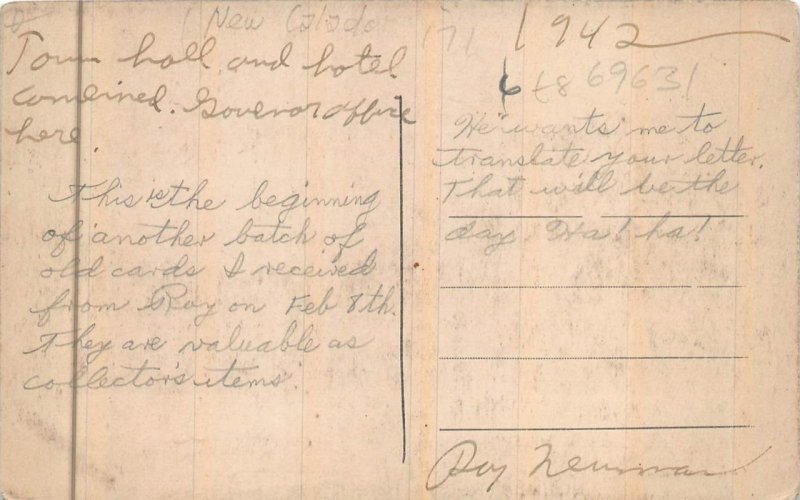 New
Town hall and hotel
combined. Governor office
here.
This is the beginning
of another batch of
old cards I received
from Roy on Feb 8th.
They are valuable as
collector's items.
1942
69631
He wants me to
translate your letter.
That will be the
day Ha! ha!
Roy Neuman